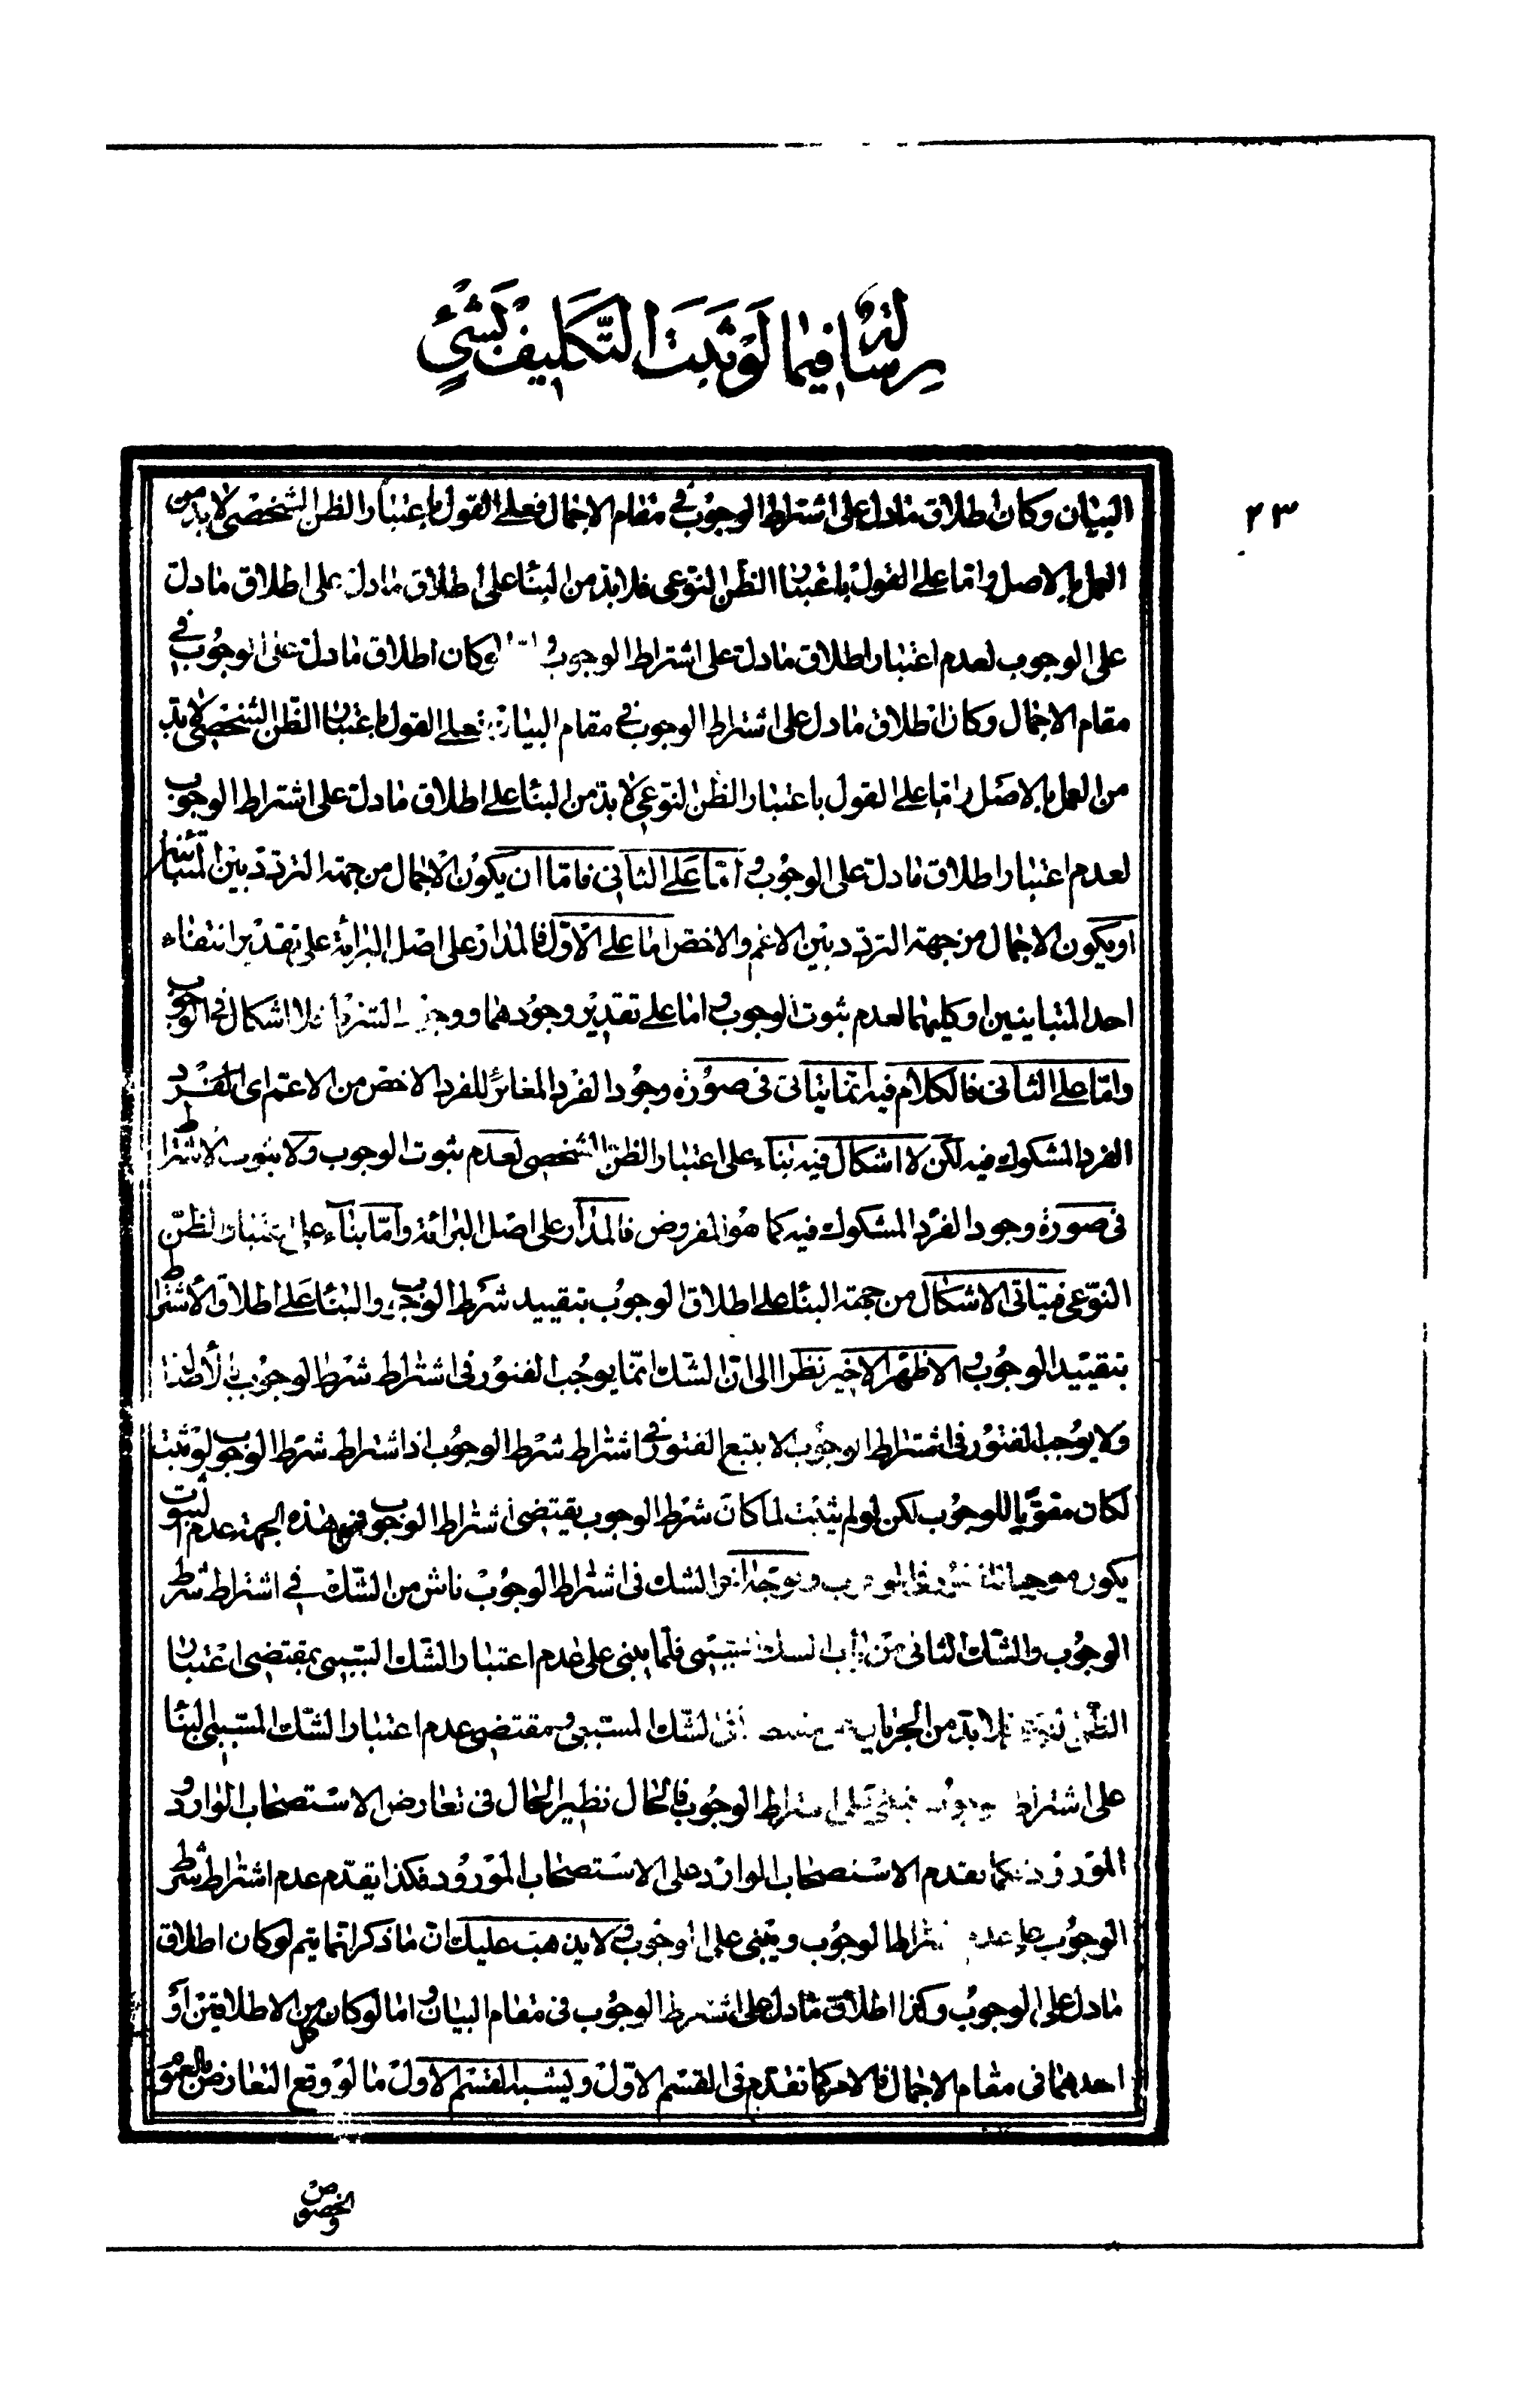 رسالة فيما لو ثبت التكليف بشئ
٢٣
البيان وكان اطلاق ما دل على اشتراط الوجوب في مقام الاجمال فعلى القول باعتبار الظن الشخصى لا بد من
العمل بالاصل واما على القول باعتبار الظن النوعى فلا بد من البناء على اطلاق ما دل على اطلاق ما دل
على الوجوب لعدم اعتبار اطلاق ما دل على اشتراط الوجوب و لو كان اطلاق ما دل على الوجوب في
مقام الاجمال وكان اطلاق ما دل على اشتراط الوجوب في مقام البيان فعلى القول باعتبار الظن الشخصى لا بد
من العمل بالاصل واما على القول باعتبار الظن النوعى لا بد من البناء على اطلاق ما دل على اشتراط الوجوب
لعدم اعتبار اطلاق ما دل على الوجوب واما على الثانى فاما ان يكون الاجمال من جهة التردد بين المتباينين
او يكون الاجمال من جهة التردد بين الاعم والاخص اما على الاول فالمدار على اصل البرائة على تقدير انتفاء
احد المتباينين او كليهما لعدم ثبوت الوجوب واما على تقدير وجودهما ووجود الشرط فلا اشكال فى الوجوب
واما على الثانى فالكلام فيه انما يتاتى فى صورة وجود الفرد المغاير للفرد الاخص من الاعم اى الفرد
الفرد المشكوك فيه لكن لا اشكال فيه بناء على اعتبار الظن الشخصى لعدم ثبوت الوجوب ولا ثبوت الاشتراط
فى صورة وجود الفرد المشكوك فيه كما هو المفروض فالمدار على اصل البرائة واما بناء على اعتبار الظن
النوعى فيتاتى الاشكال من جهة البناء على اطلاق الوجوب بتقييد شرط الوجوب والبناء على اطلاق الاشتراط
بتقييد الوجوب والاظهر الاخير نظرا الى ان الشك انما يوجب الفتور فى اشتراط شرط الوجوب بالاطلاق
ولا يوجب الفتور فى اشتراط الوجوب الا بتبع الفتور في اشتراط شرط الوجوب اذ اشتراط شرط الوجوب لو ثبت
لكان مقويا للوجوب لكن لو لم يثبت لما كان شرط الوجوب يقتضى اشتراط الوجوب فمن هذه الجهة عدم الثبوت
يكون موجبا الوجوب وبوجه اخر الشك فى اشتراط الوجوب ناش من الشك في اشتراط شرط
الوجوب والشك الثانى من باب الشك السببى فلما يبنى على عدم اعتبار الشك السببى بمقتضى اعتبار
الظن فلا بد من الجريان الشك المسببى ومقتضى عدم اعتبار الشك المسببى البناء
على اشتراط اشتراط الوجوب فالحال نظير الحال فى تعارض الاستصحاب الوارد و
المورود فكما يقدم الاستصحاب الوارد على الاستصحاب المورود فكذا يقدم عدم اشتراط شرط
الوجوب على عدم اشتراط الوجوب ويبنى على الوجوب ولا يذهب عليك ان ما ذكر انما يتم لو كان اطلاق
ما دل على الوجوب وكذا اطلاق ما دل على اشتراط الوجوب فى مقام البيان واما لو كان كل من الاطلاقين او
احدهما فى مقام الاجمال فالامر كما تقدم فى القسم الاول ويشبه القسم الاول ما لو وقع التعارض بالعموم
والخصوص